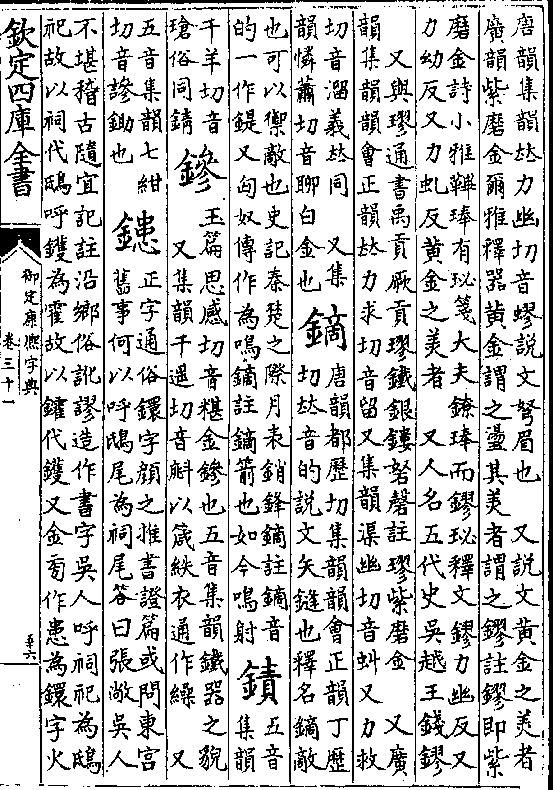 唐韻集韻𠀤力幽切音蟉說文弩眉也　又說文黃金之美者
廣韻紫磨金爾雅釋器黃金謂之璗其美者謂之鏐註鏐即紫
磨金詩小雅鞞琫有珌箋大夫鐐琫而鏐珌釋文鏐力幽反又
力幼反又力虬反黃金之美者　又人名五代史吳越王錢鏐
又與璆通書禹貢厥貢璆鐵銀鏤砮磬註璆紫磨金　又廣
韻集韻韻會正韻𠀤力求切音留又集韻渠幽切音虯又力救
切音溜義𠀤同　又集
韻憐蕭切音聊白金也
鏑
唐韻都歷切集韻韻會正韻丁歷
切𠀤音的說文矢鏠也釋名鏑敵
也可以禦敵也史記秦楚之際月表銷鋒鏑註鏑音
的一作鍉又匈奴傳作為鳴鏑註鏑箭也如今鳴射
五音
集韻
千羊切音
瑲俗同錆
鏒
玉篇思感切音糂金鏒也五音集韻鐵器之貌
又集韻千遙切音以箴紩衣通作繰　又
五音集韻七紺
切音謲鋤也
正字通俗鐶字顏之推書證篇或問東宮
舊事何以呼鴟尾為祠尾答曰張敞吳人
不堪稽古隨宜記註沿鄉俗訛謬造作書字吳人呼祠祀為鴟
祀故以祠代鴟呼鑊為霍故以鑵代鑊又金旁作患為鐶字火
欽定四庫全書
御定康熙字典
卷三十一